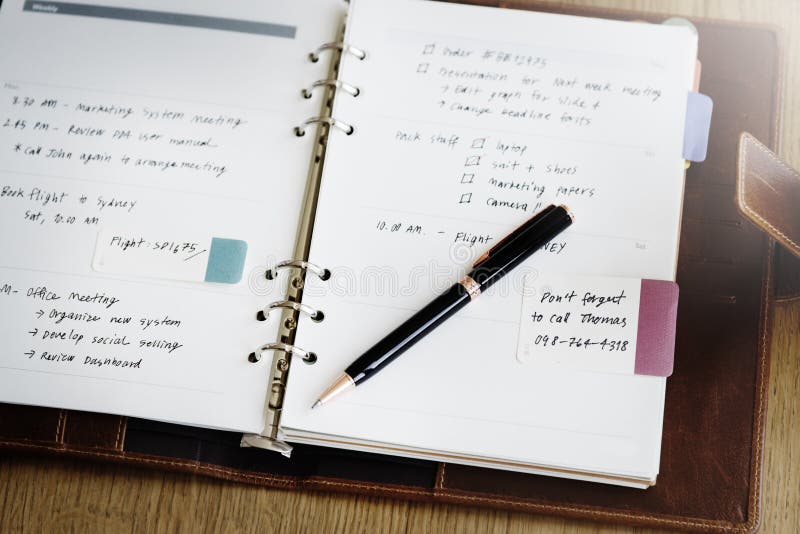 Weekly
8.30 AM - Marketing System Meeting
2.45 PM - Review PDA user manual
* Call John again to arrange meeting
Book Flight to Sydney
Sat, 10.00 AM
Flight: SD1675
M- Office Meeting
→ Organize new system
→ Develop social selling
→ Review Dashboard
☐ Order
☐ Presentation for Next week meeting
→ Edit graph for slide 4
→ Change headline fonts
Pack stuff ☐ laptop
☐ suit + shoes
☐ marketing papers
☐ camera !!
10.00 AM. - Flight
Don't forget
to call Thomas
098-764-4318
dreamstime